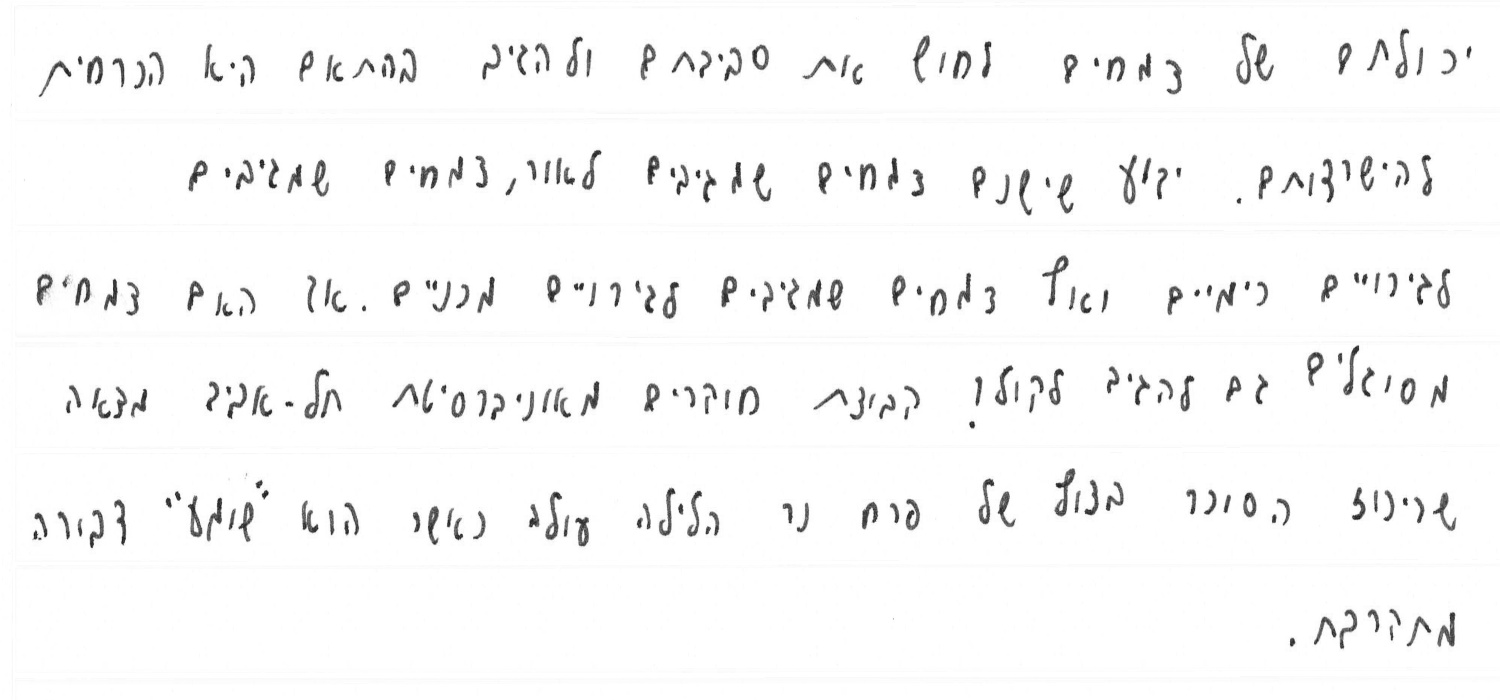 יכולתם של צמחים לחוש את סביבתם ולהגיב בהתאם היא הכרחית
להישרדותם. ידוע שישנם צמחים שמגיבים לאור, צמחים שמגיבים
לגירויים כימיים ואף צמחים שמגיבים לגירויים מכניים. אך האם צמחים
מסוגלים גם להגיב לקול? קבוצת חוקרים מאוניברסיטת תל-אביב מצאה
שריכוז הסוכר בצוף של פרח נר הלילה עולה כאשר הוא "שומע" דבורה
מתקרבת.